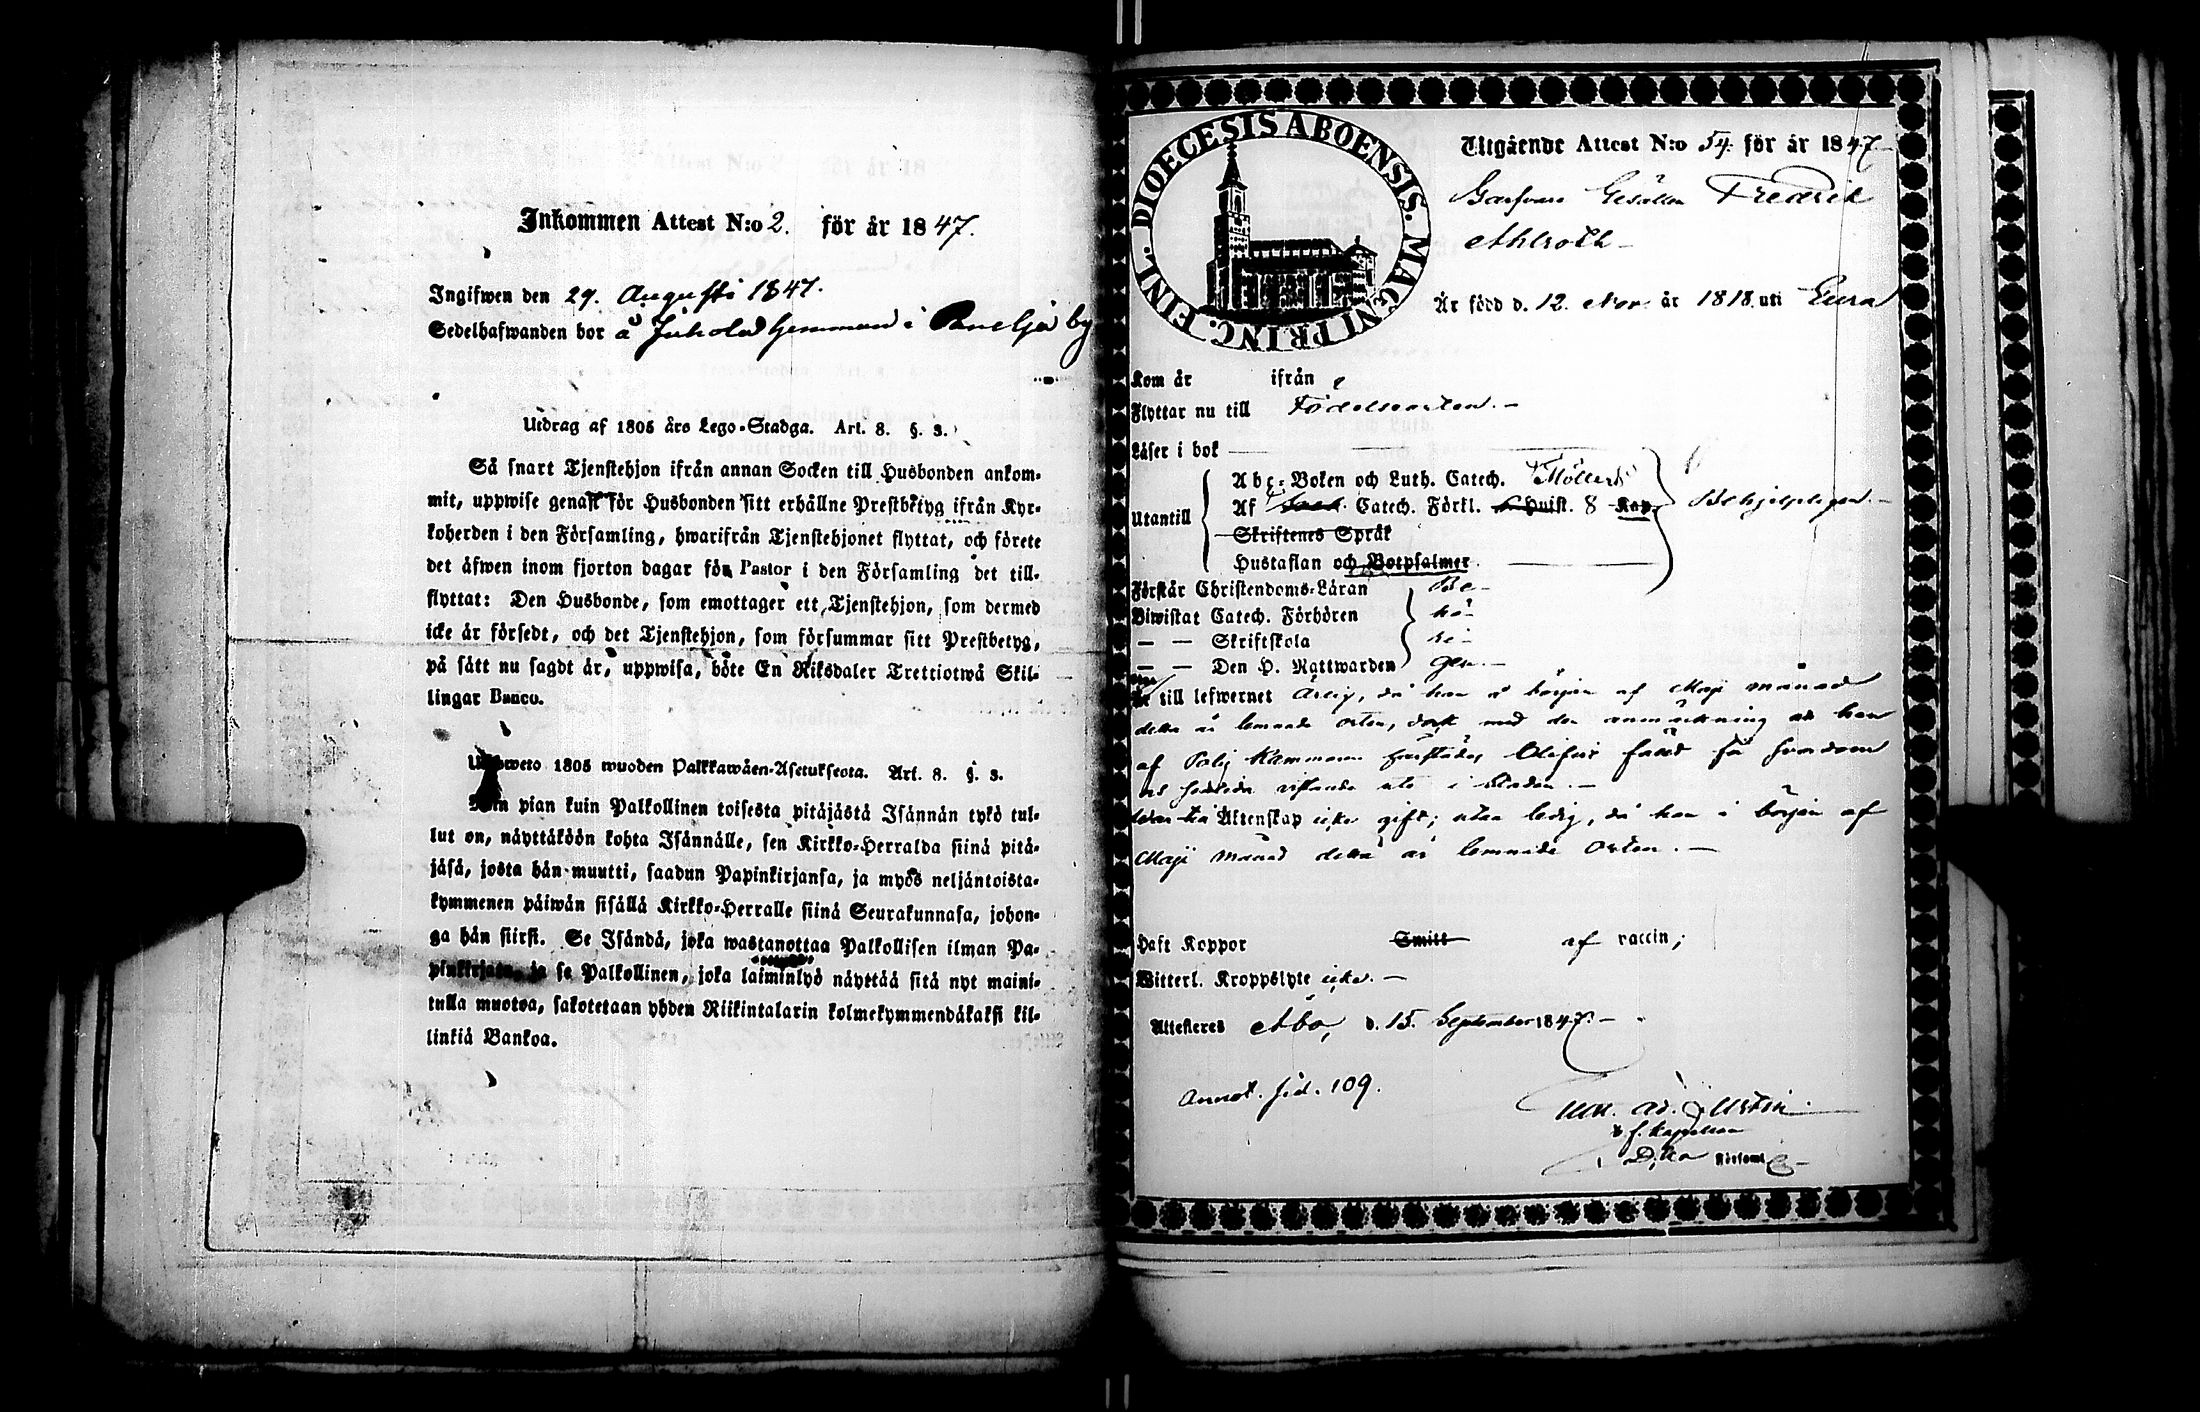 Inkommen Attest N:o 2. för år 1847.
Ingifwen den 29. Augusti 1847.
Sedelhafwanden bor å Juhola hemman i Panelja by
Utdrag af 1805 års Lego-Stadga. Art. 8. §. 3.
Så snart Tjenstehjon ifrån annan Socken till Husbonden ankom-
mit, uppwise genast för Husbonden sitt erhållne Prestbetyg ifrån Kyr-
koherden i den Församling, hwarifrån Tjenstehjonet flyttat, och förete
det äfwen inom fjorton dagar för Pastor i den Församling det till-
flyttat: Den Husbonde, som emottager ett Tjenstehjon, som dermed
icke är försedt, och det Tjenstehjon, som försummar sitt Prestbetyg,
på sätt nu sagdt är, uppwisa, böte En Riksdaler Trettiotwå Skil-
lingar Banco.
1805 wuoden Palkkawäen-Asetuksesta. Art. 8. §. 3.
pian kuin Palkollinen toisesta pitäjästä Isännän tykö tul-
lut on, näyttäköön kohta Isännälle, sen Kirkko-Herralda siinä pitä-
jäsä, josta hän muutti, saadun Papinkirjansa, ja myös neljäntoista-
kymmenen päiwän sisällä Kirkko-Herralle siinä Seurakunnasa, johon-
ga hän siirsi. Se Isändä, joka wastanottaa Palkollisen ilman Pa-
pinkirjata, ja se Palkollinen, joka laiminlyö näyttää sitä nyt maini-
tulla muotoa, sakotetaan yhden Riikintalarin kolmekymmendäkaksi kil-
linkiä Bankoa.
DIOECESIS ABOENSIS. MAGNI PRINC. FINL.
Utgående Attest N:o 54. för år 1847
Garfvare Gesällen Fredrik
Ahlroth
Är född d. 12. Nov. år 1818. uti Eura
Kom år ifrån
Flyttar nu till Födelseorten.
Läser i bok
Abc-Boken och Luth. Catech. Möllers
Utantill
Af Catech. Förkl. Quist. 8 Kap. Behjelpligen.
Skriftenes Språk
Hustaflan och Botpsalmer
Förstår Christendoms-Läran Be-
Biwistat Catech. Förhören hö-
— — Skriftskola ri-
— — Den H. Nattwarden gen.
till lefwernet ärlig, då han i början af Maji månad
detta år lemnade orten, dock med den anmärkning att han
af
i staden.
Äktenskap icke gift; utan ledig, då han i början af
Maji månad detta år lemnade Orten.
Haft Koppor Smitt af vaccin;
Witterl. Kroppslyte icke.
Attesteras Åbo, d. 15. September 1847.
Annot. sid. 109.